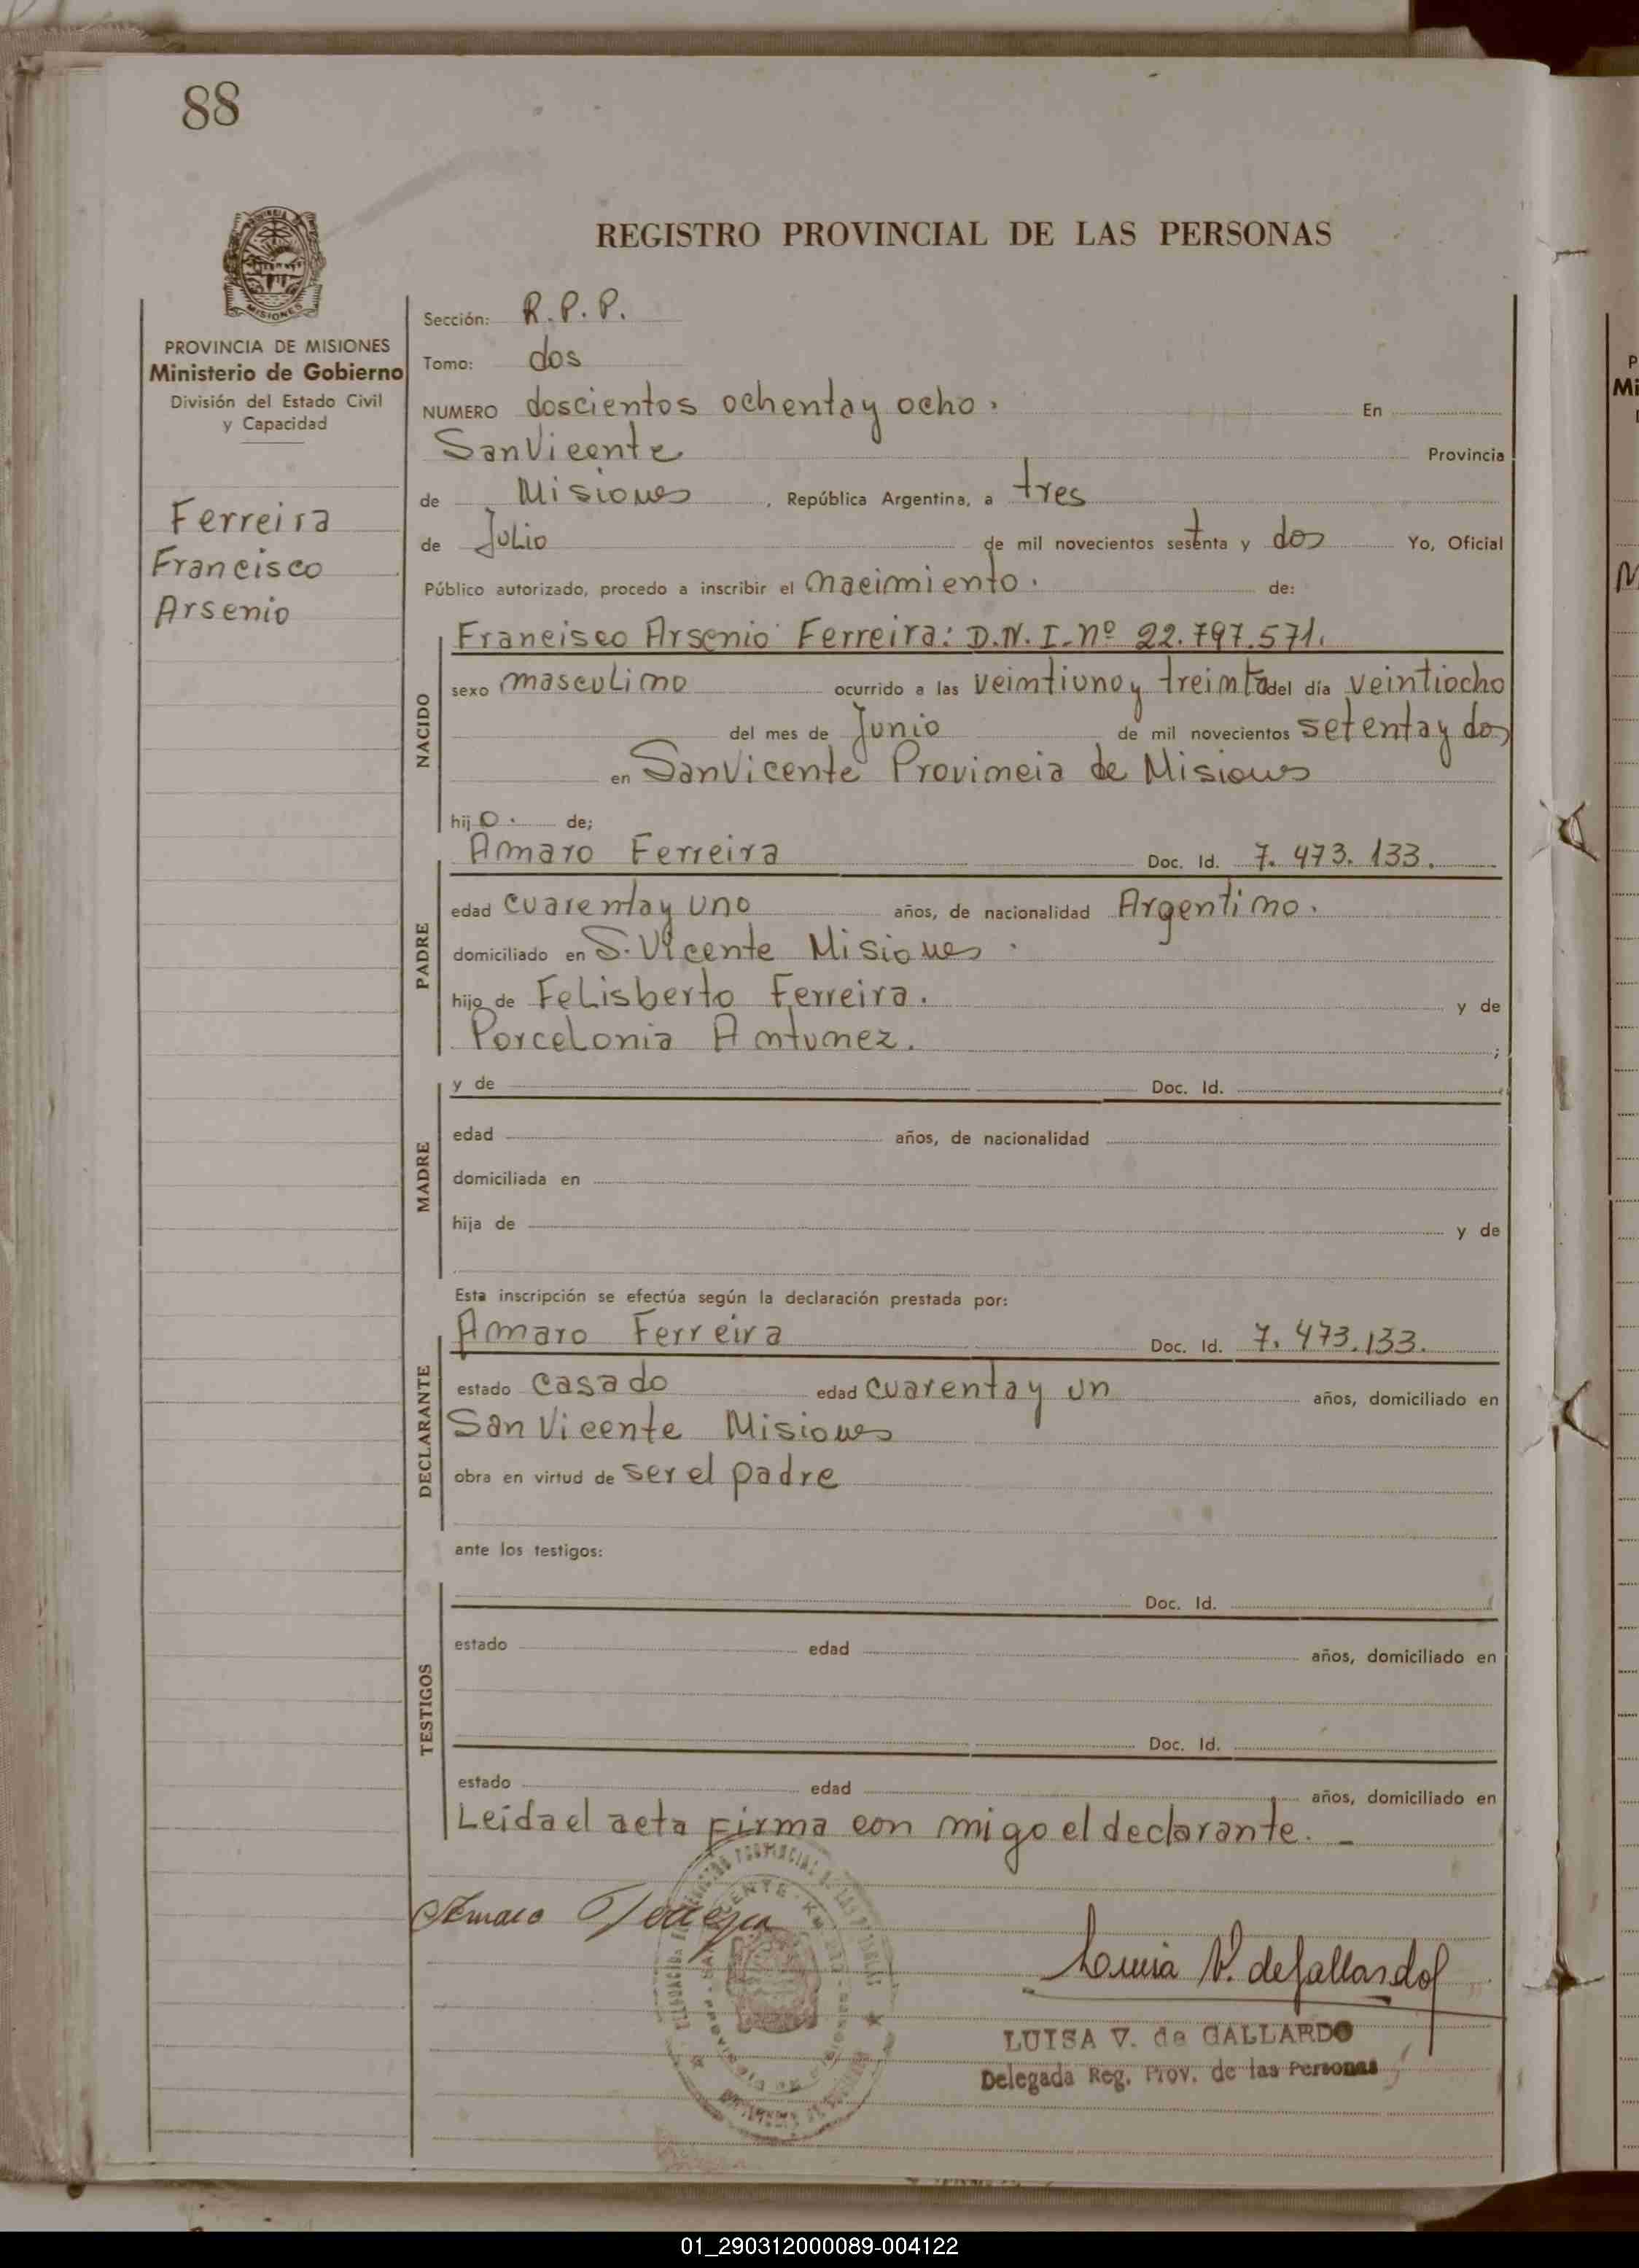 88
REGISTRO PROVINCIAL DE LAS PERSONAS
MISIONES
PROVINCIA DE MISIONES
Ministerio de Gobierno
División del Estado Civil
y Capacidad
Ferreira
Francisco
Arsenio
Sección: R.P.P.
Tomo: dos
NUMERO doscientos ochenta y ocho. En
San Vicente Provincia
de Misiones, República Argentina, a tres
de Julio de mil novecientos setenta y dos Yo, Oficial
Público autorizado, procedo a inscribir el nacimiento. de:
NACIDO
Francisco Arsenio Ferreira: D.N.I. nº 22.797.571.
sexo masculino ocurrido a las veintiuno y treinta del día veintiocho
del mes de Junio de mil novecientos setenta y dos
en San Vicente Provincia de Misiones
hijo. de;
PADRE
Amaro Ferreira Doc. Id. 7.473.133.
edad cuarenta y uno años, de nacionalidad Argentino.
domiciliado en S. Vicente Misiones.
hijo de Felisberto Ferreira. y de
Porcelonia Antunez. ;
MADRE
y de Doc. Id.
edad años, de nacionalidad
domiciliada en
hija de y de
Esta inscripción se efectúa según la declaración prestada por:
DECLARANTE
Amaro Ferreira Doc. Id. 7.473.133.
estado casado edad cuarenta y un años, domiciliado en
San Vicente Misiones
obra en virtud de ser el padre
ante los testigos:
TESTIGOS
Doc. Id.
estado edad años, domiciliado en
Doc. Id.
estado edad años, domiciliado en
Leida el acta firma con migo el declarante. -
Amaro Ferreira
Luisa V. de Gallardo
LUISA V. de GALLARDO
Delegada Reg. Prov. de las Personas
01_290312000089-004122